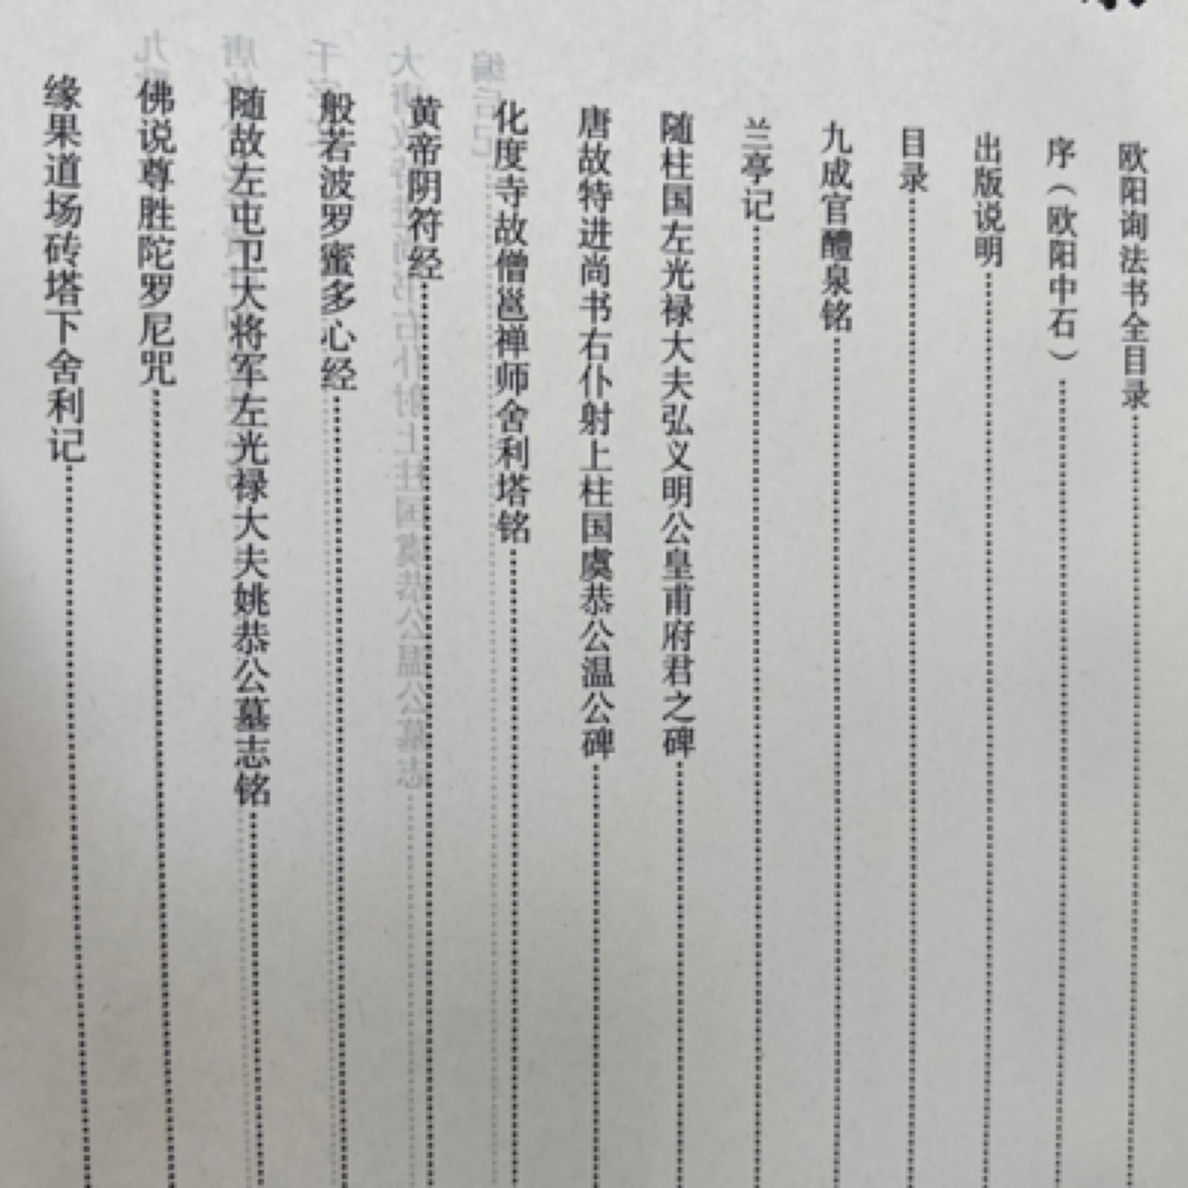 欧阳询法书全目录
序（欧阳中石）
出版说明
目录
九成官醴泉铭
兰亭记
随柱国左光禄大夫弘义明公皇甫府君之碑
唐故特进尚书右仆射上柱国虞恭公温公碑
化度寺故僧邕禅师舍利塔铭
黄帝阴符经
般若波罗蜜多心经
随故左屯卫大将军左光禄大夫姚恭公墓志铭
佛说尊胜陀罗尼咒
缘果道场砖塔下舍利记